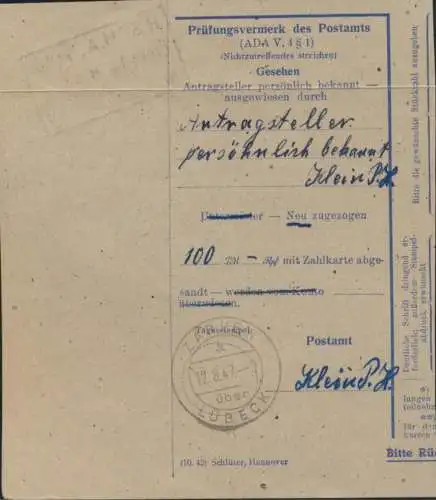 Prüfungsvermerk des Postamts
(ADA V, 4 § 1)
(Nichtzutreffendes streichen)
Gesehen
Antragsteller persönlich bekannt —
ausgewiesen durch
Antragsteller
persöhnlich bekannt
Klein P.H.
Untermieter — Neu zugezogen
100 RM — Rpf mit Zahlkarte abge-
sandt — werden vom Konto
überwiesen.
Tagesstempel
Postamt
12.8.47.-
über
LÜBECK
Klein P.H.
(10. 42) Schlüter, Hannover
Bitte die gewünschte Stückzahl anzugeben
Deutliche Schrift dringend er-
forderlich; außerdem Stempel-
abdruck erwünscht
lungen
teilnehm
für den
kurzen
Bitte Rü